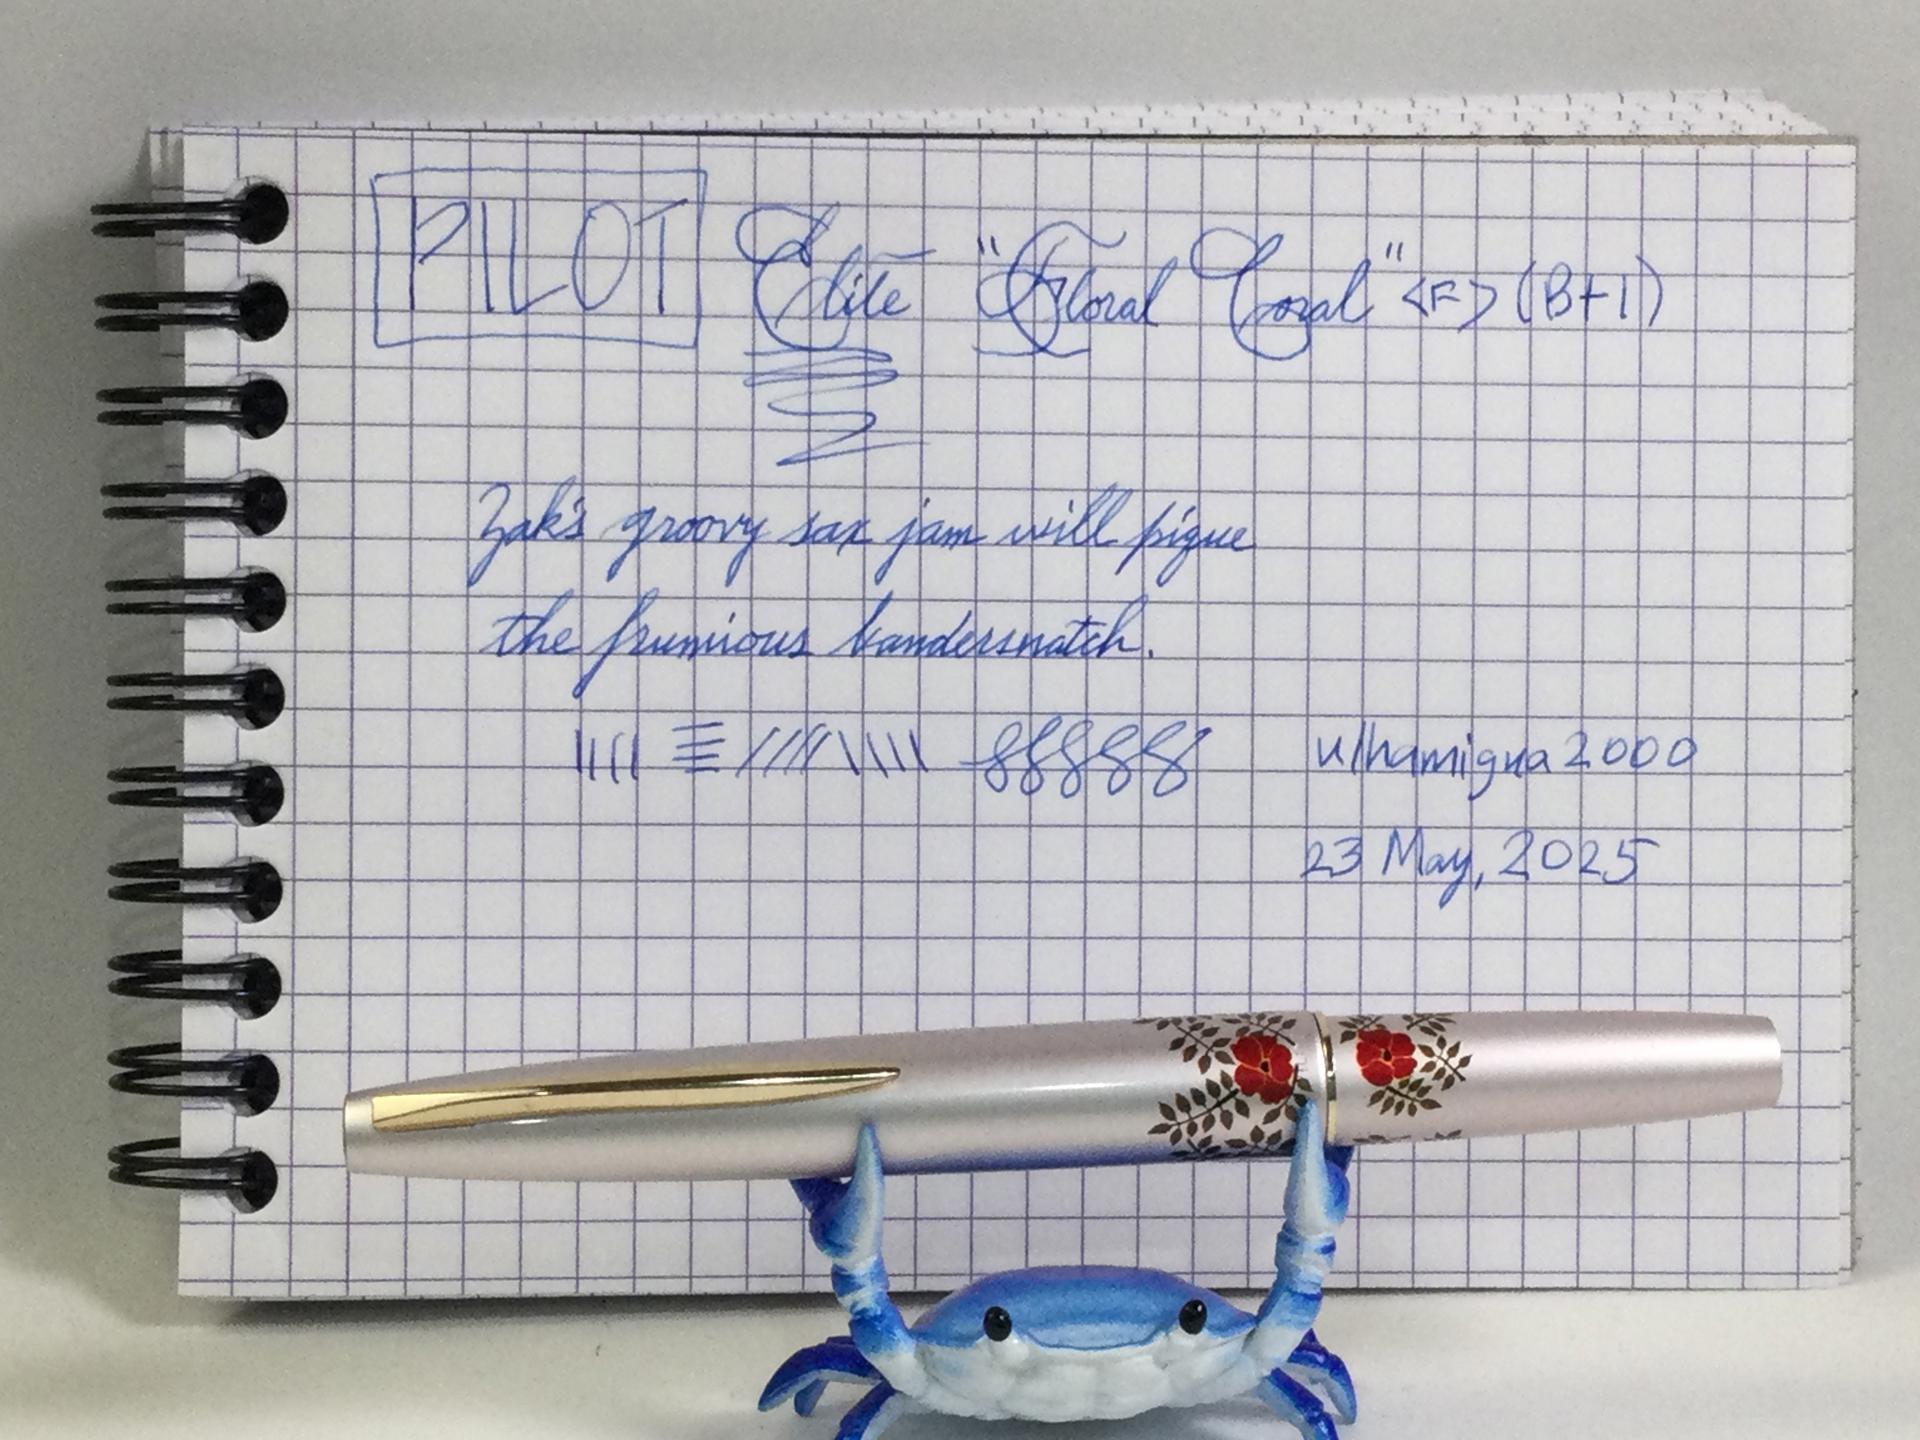 PILOT Elite "Floral Coral" <F> (B+1)
Zak's groovy sax jam will pique
the frumious bandersnatch.
u/hamigua2000
23 May, 2025